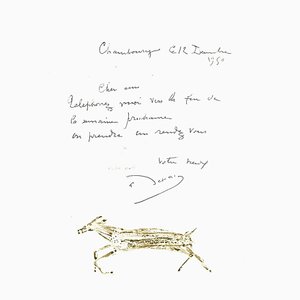 Chambourcy le 12 Decembre
1950
Cher ami
telephonez moi vers la fin de
la semaine prochaine
on prendra un rendez vous
votre vieux
a Derain